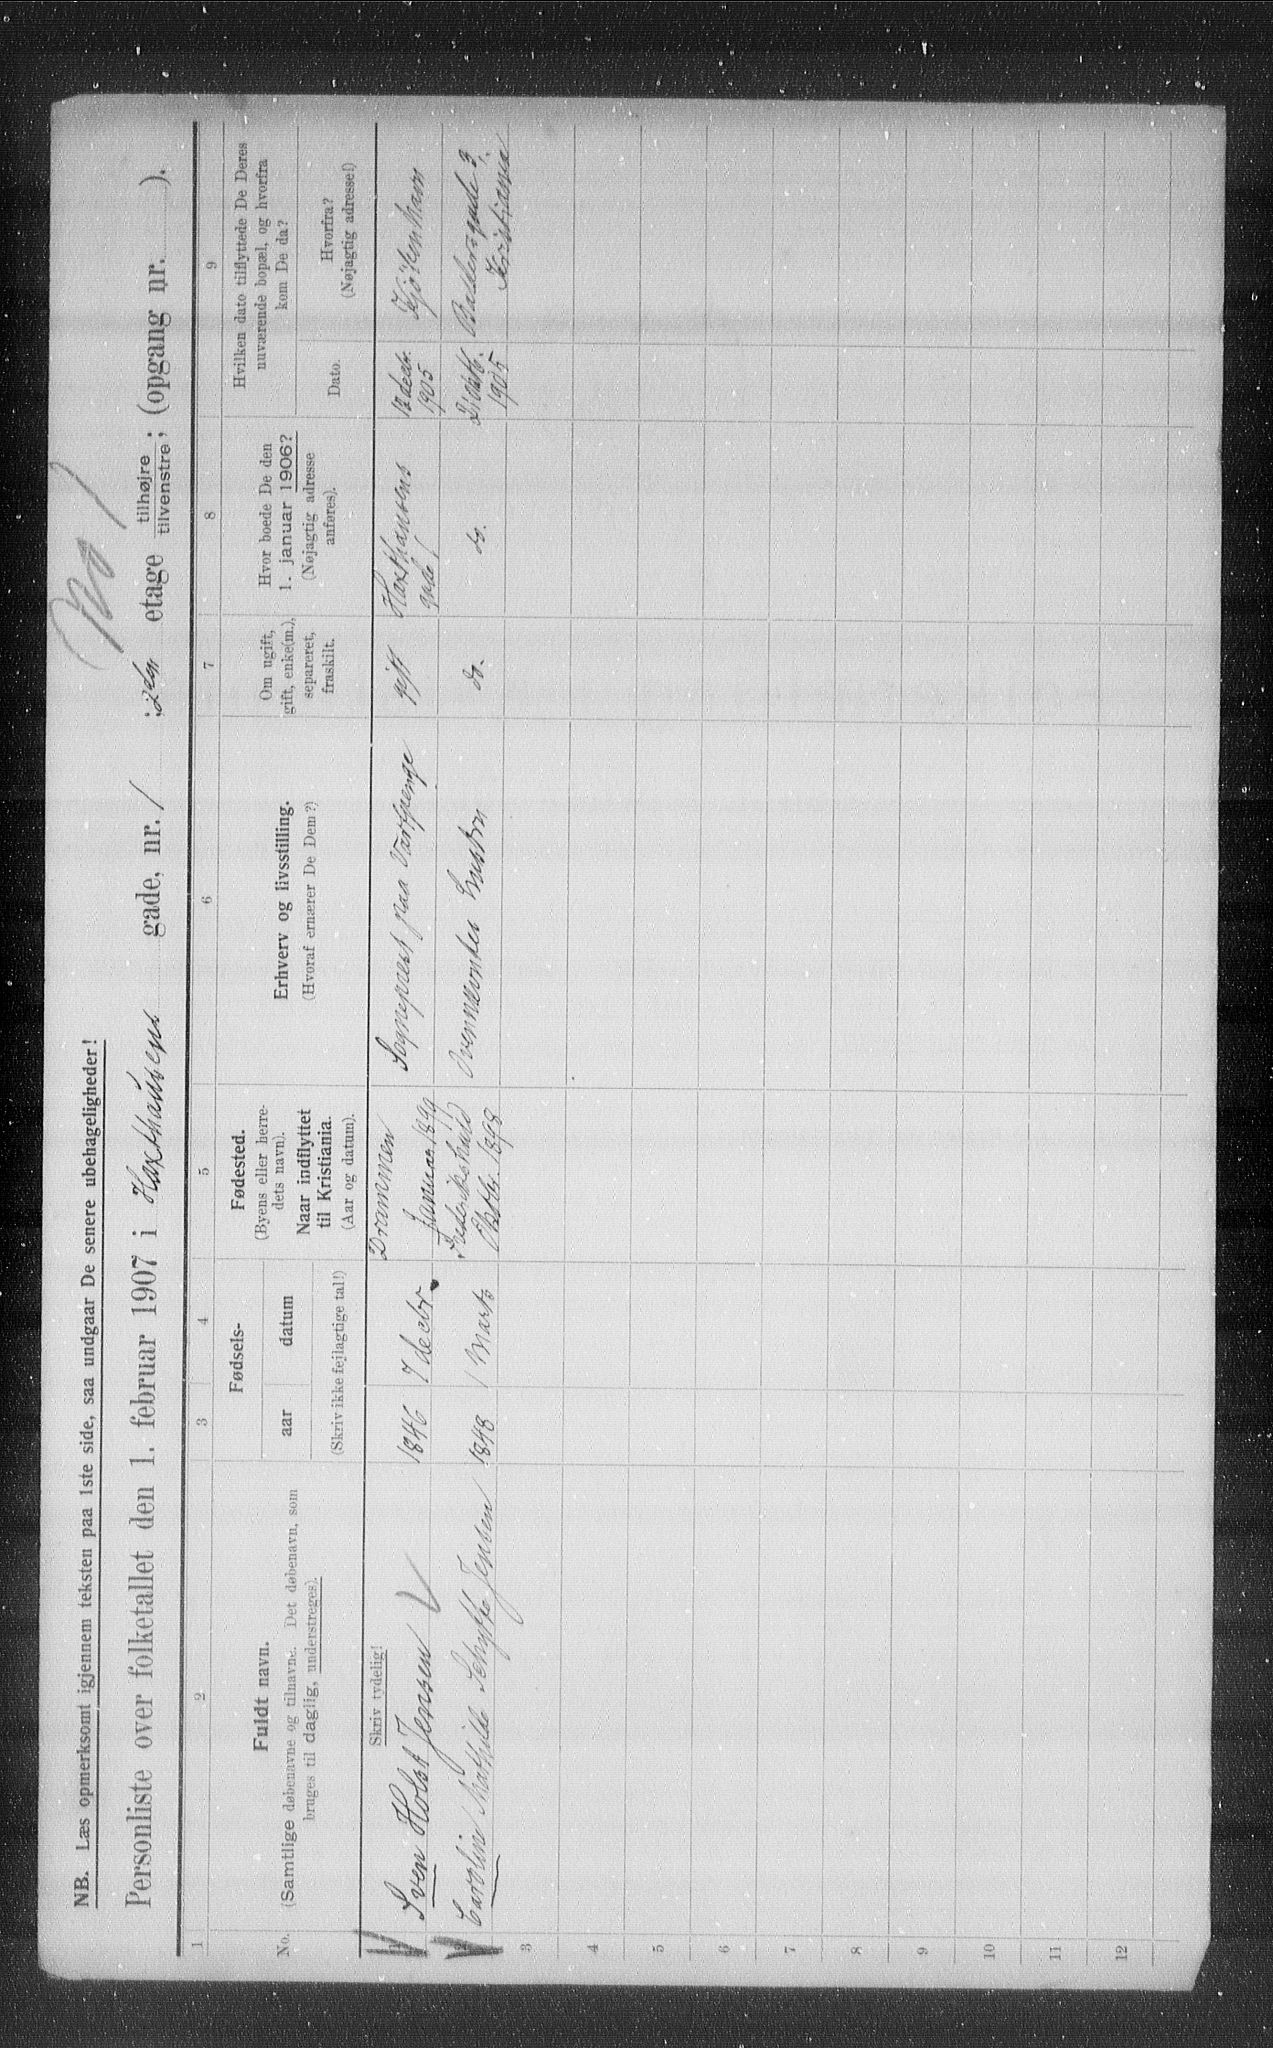 NB. Læs opmerksomt igjennem teksten paa 1ste side, saa undgaar De senere ubehageligheder!
Personliste over folketallet den 1. februar 1907 i Haxthausens gade, nr. 1 ; 2den etage tilhøjre tilvenstre; (opgang nr. ).
1 2 3 4 5 6 7 8 9
No.
Fuldt navn.
(Samtlige døbenavne og tilnavne. Det døbenavn, som
bruges til daglig, understreges).
Fødsels-
aar datum
(Skriv ikke fejlagtige tal!)
Fødested.
(Byens eller herre-
dets navn).
Naar indflyttet
til Kristiania.
(Aar og datum).
Erhverv og livsstilling.
(Hvoraf ernærer De Dem?)
Om ugift,
gift, enke(m.),
separeret,
fraskilt.
Hvor boede De den
1. januar 1906?
(Nøjagtig adresse
anføres).
Hvilken dato tilflyttede De Deres
nuværende bopæl, og hvorfra
kom De da?
Dato.
Hvorfra?
(Nøjagtig adresse!)
Skriv tydelig!
Sven Holst Jensen 1846 7 decbr. Drammen
Januar 1899 Sogneprest paa Vartpenge gift Haxthausens
gade 1 12 decbr.
1905 Kjöbenhavn
Caroline Mathilde Schytte Jensen 1848 1 Marts Frederikshald
Oktbr. 1898 Ovennævntes Hustru do. do. 1905 Baldersgade 3,
Kristiania
3
4
5
6
7
8
9
10
11
12